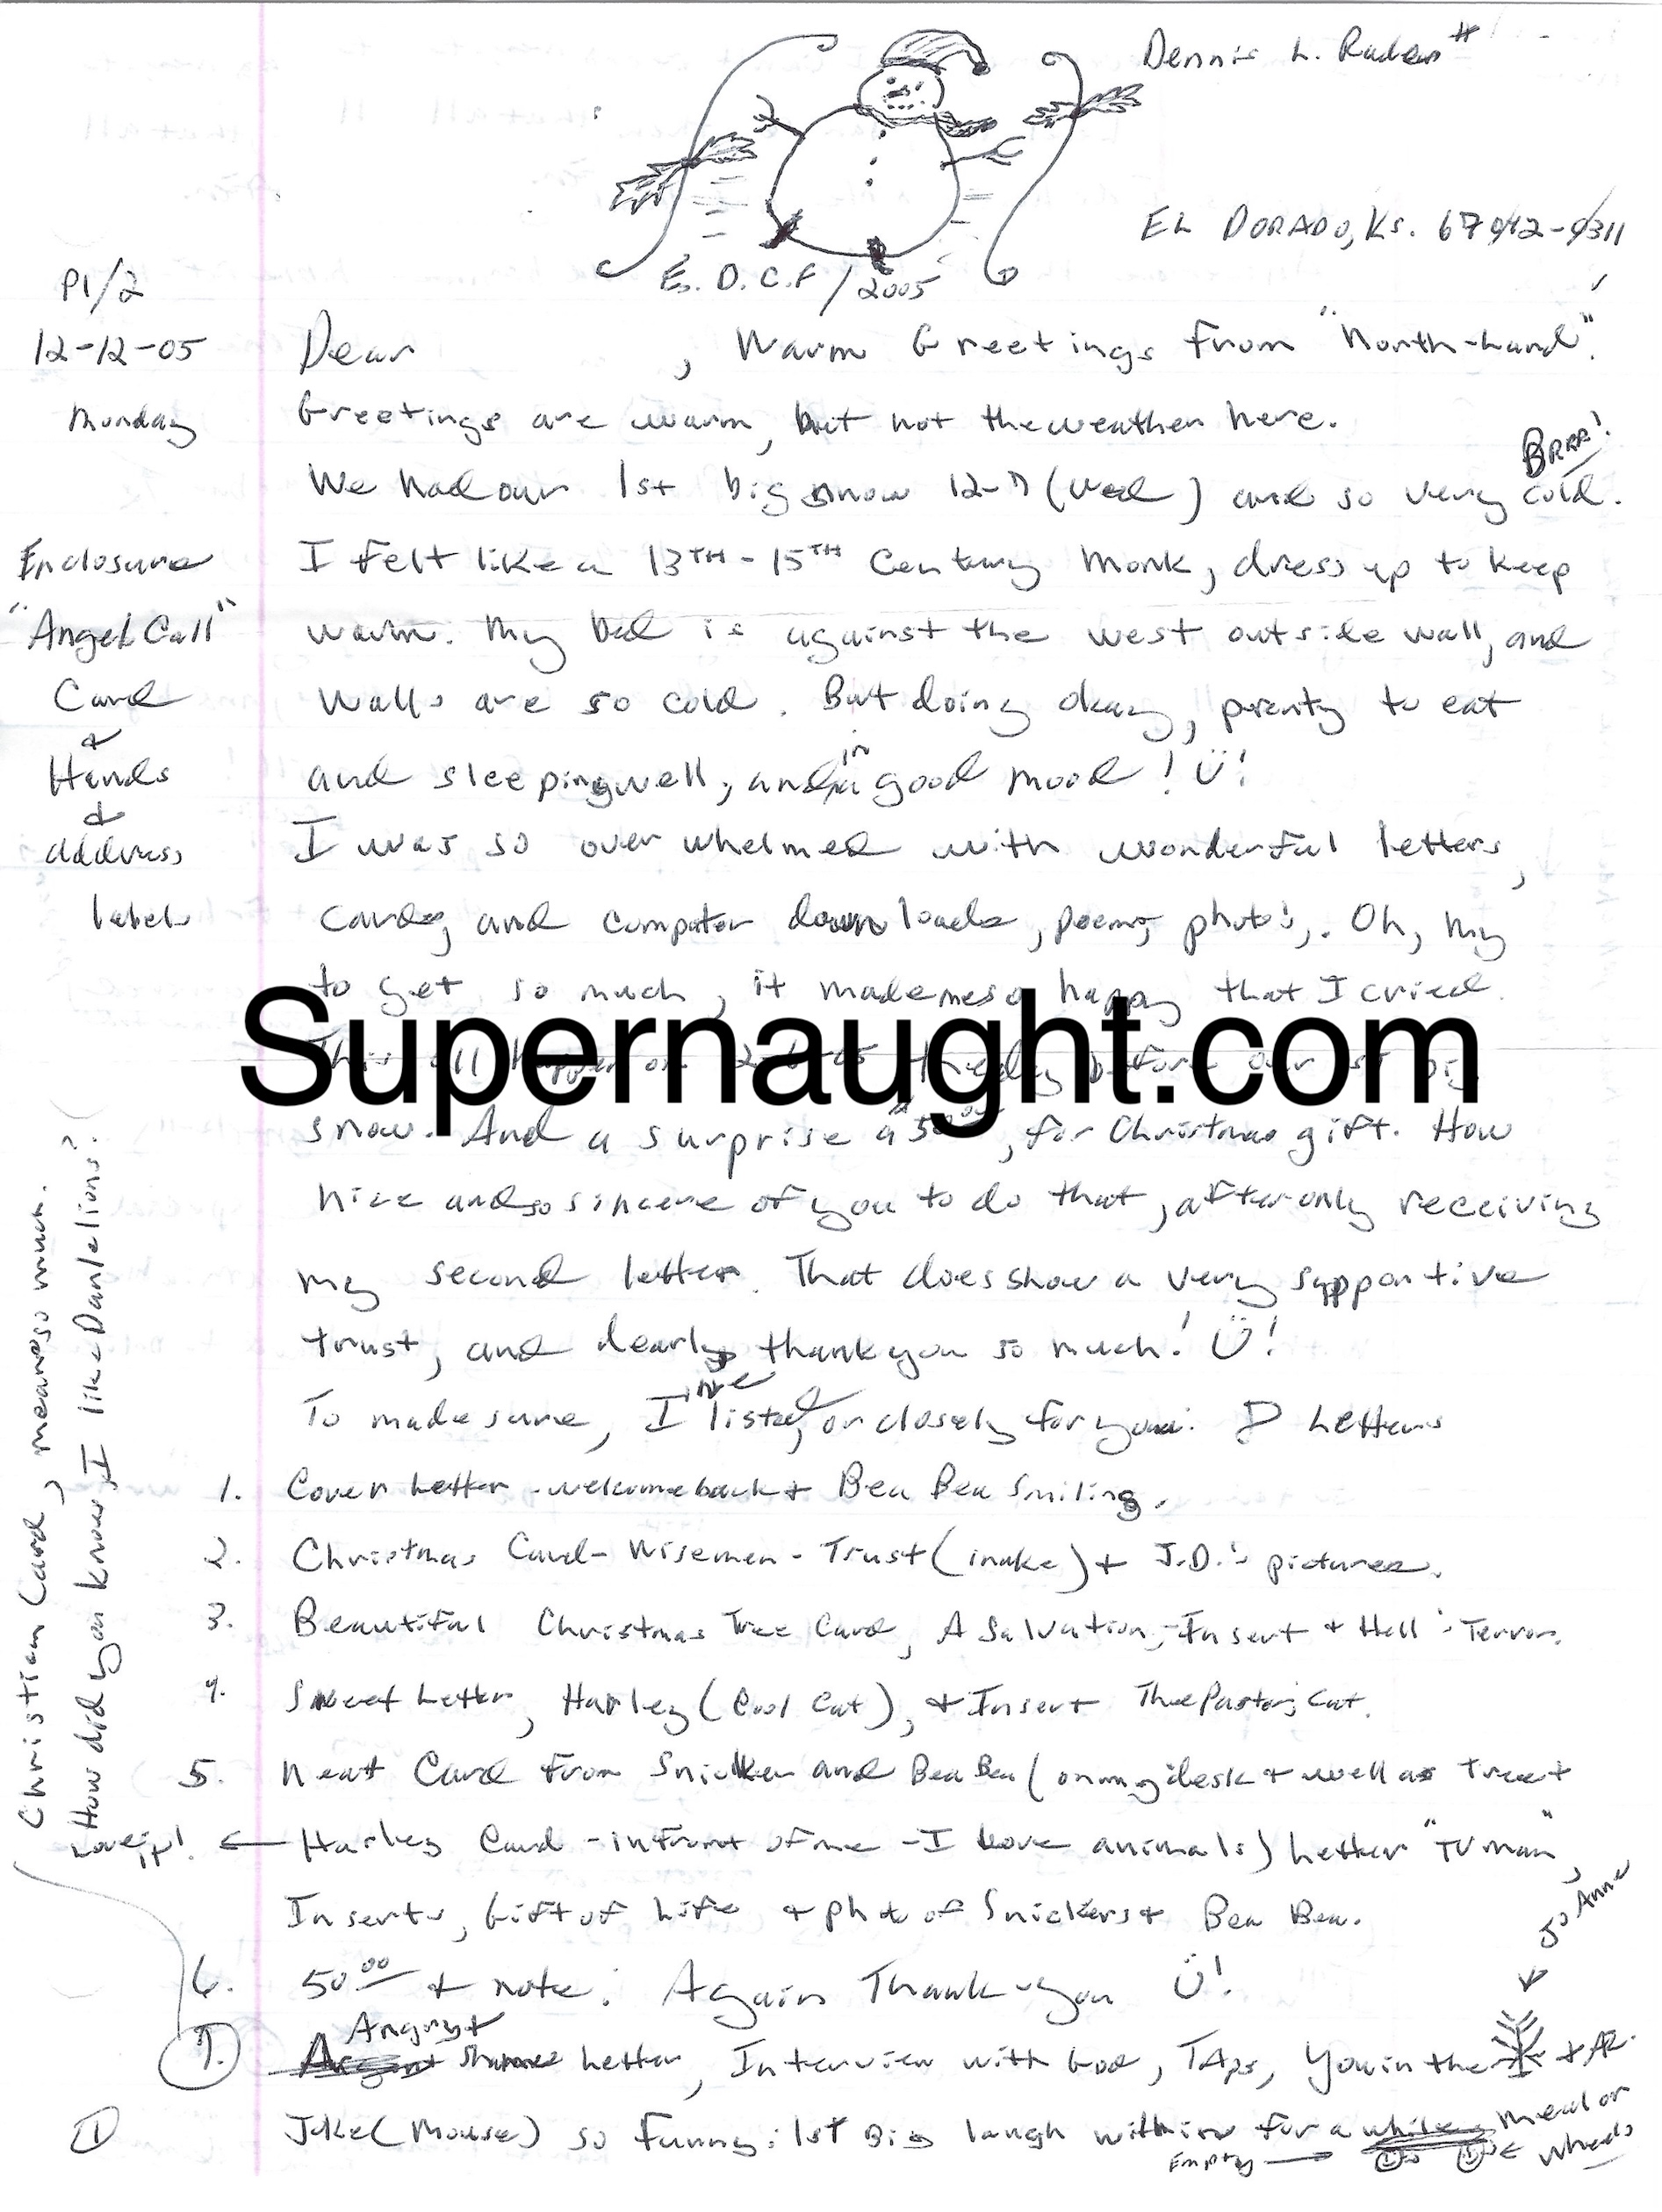 Dennis L. Rader #
EL DORADO, Ks. 67042-9311
E. D. C. F / 2005
P1/2
12-12-05
Monday
Dear , Warm Greetings from "North-Land".
Greetings are warm, but not the weather here.
BRRR!
We had our 1st big snow 12-7 (Wed) and so very cold.
I felt like a 13TH - 15TH Century Monk, dress up to keep
warm. My bed is against the west outside wall, and
walls are so cold. But doing okay, plenty to eat
and sleeping well, and in good mood! Ü!
Enclosure
"Angel Call"
Card
&
Hands
&
address
labels
I was so over whelmed with wonderful letters,
cards, and computer down loads, poems, photo's. Oh, my
to get so much, it made me so happy that I cried.
Supernaught.com
snow. And a surprise a $50.00, for Christmas gift. How
nice and so sincere of you to do that, after only receiving
my second letter. That does show a very supportive
trust, and dearly thank you so much! Ü!
To made sure, I've listed, or closely for you: 7 Letters
1. Cover Letter - welcome back + Bea Bea Smiling.
2. Christmas Card - Wisemen - Trust (intake) + J.D.'s pictures.
3. Beautiful Christmas Tree Card, A Salvation, - Insert + Hell's Terror.
4. Sweet Letter, Harley (Cool Cat), + Insert The Pastor's Cat.
5. Neat Card from Snicker and Bea Bea (on my desk + well as Tree +
Love it! ← Harley Card - in front of me - I love animals) Letter "TV man",
Inserts, Gift of Life + photo of Snickers + Bea Bea.
6. 50.00 + note. Again Thank-you Ü!
7. Angry + Letter, Interview with God, TAPS, You in the + AR.
Jo Anne
Joke (Mouse) so funny: 1st Big laugh within for a while
Empty → ← Meal on Wheels
1
Christian Card, means so much.
How did you know, I like Dandelions?!